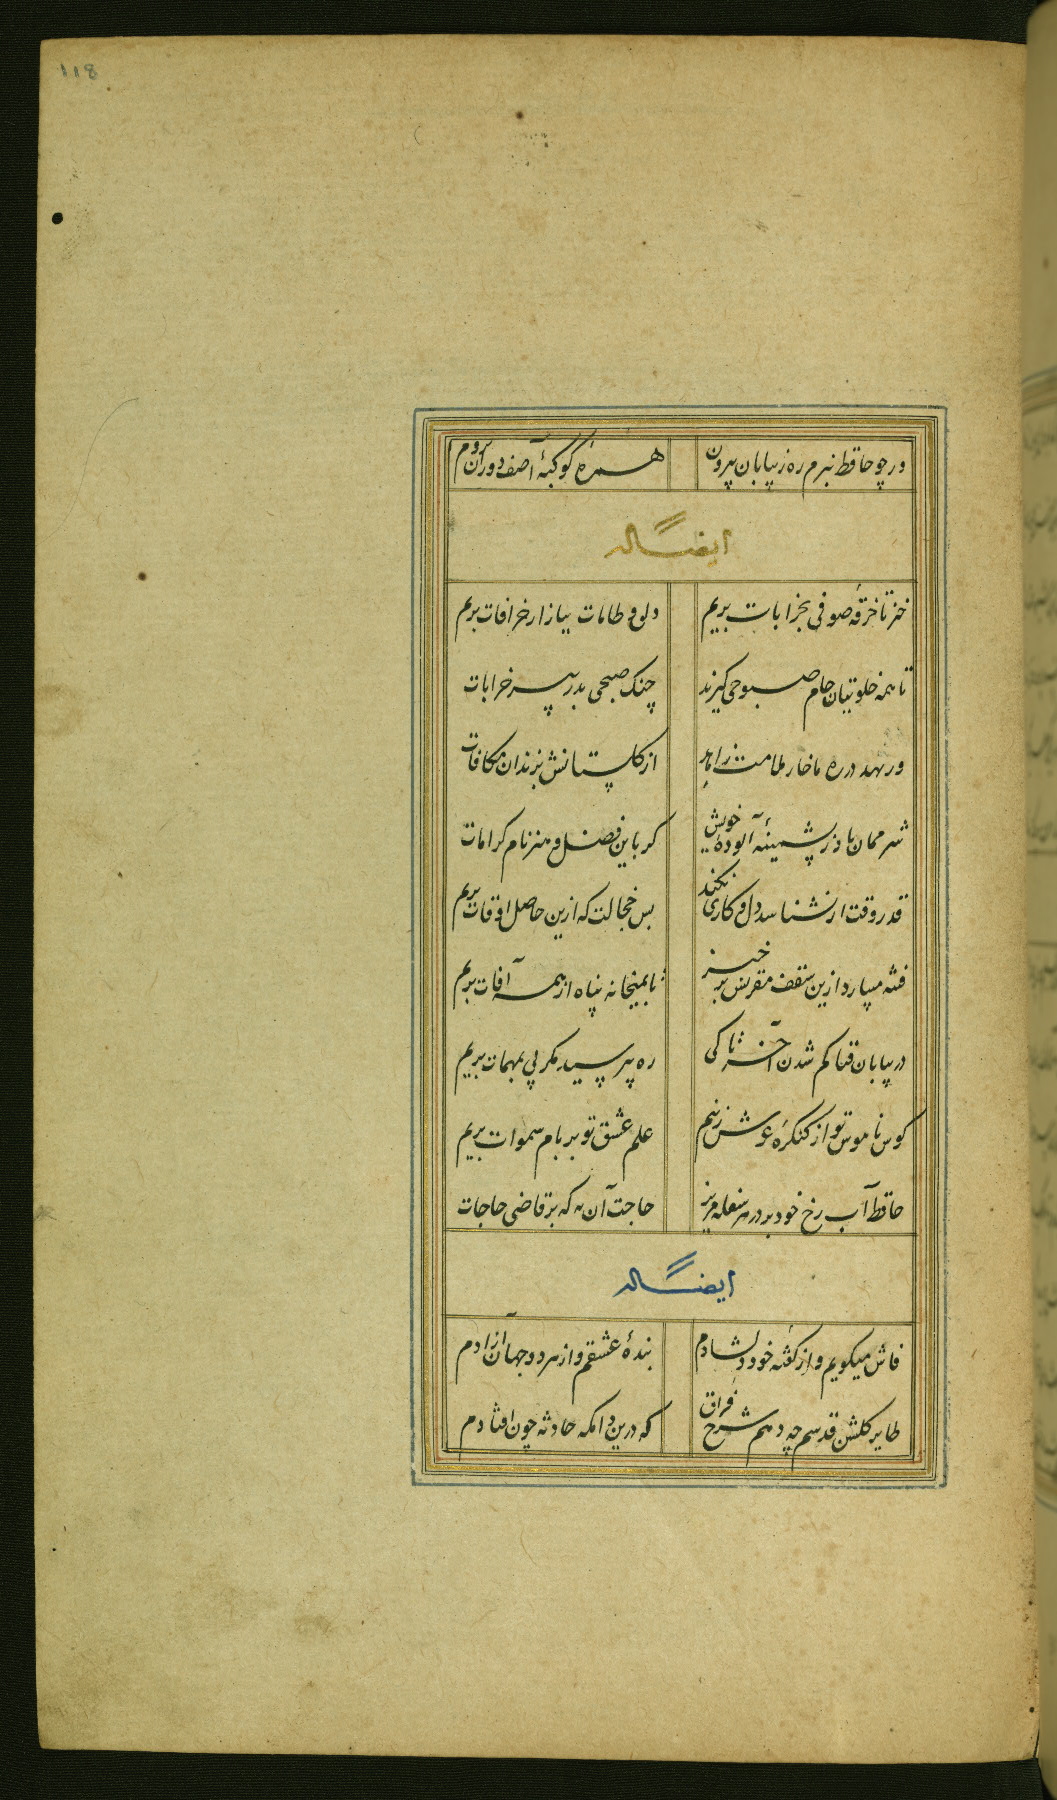 118
ورچو حافظ نبرم ره ز بیابان بیرون
همره کوکبهٔ آصف دوران بروم
ایضاً له
خیز تا خرقهٔ صوفی بخرابات بریم
دلق و طامات ببازار خرافات بریم
تا همه خلوتیان جام صبوحی گیرند
چنک صبحی بدر پیر خرابات
ور نهد در ره ما خار ملامت زاهد
از گلستانش بزندان مکافات
شرممان باد ز پشمینهٔ آلودهٔ خویش
گر باین فضل و هنر نام کرامات
قدر وقت ار نشناسد دل و کاری نکند
بس خجالت که ازین حاصل اوقات بریم
فتنه میبارد ازین سقف مقرنس برخیز
تا بمیخانه پناه از همه آفات بریم
در بیابان فنا گم شدن آخر تا کی
ره بپرسیم مگر پی بمهمات بریم
کوس ناموس تو از کنگرهٔ عرش زنیم
علم عشق تو بر بام سموات بریم
حافظ آب رخ خود بر در هر سفله مریز
حاجت آن به که بر قاضی حاجات
ایضاً له
فاش میگویم و از گفتهٔ خود دلشادم
بندهٔ عشقم و از هر دو جهان آزادم
طایر گلشن قدسم چه دهم شرح فراق
که درین دامگه حادثه چون افتادم